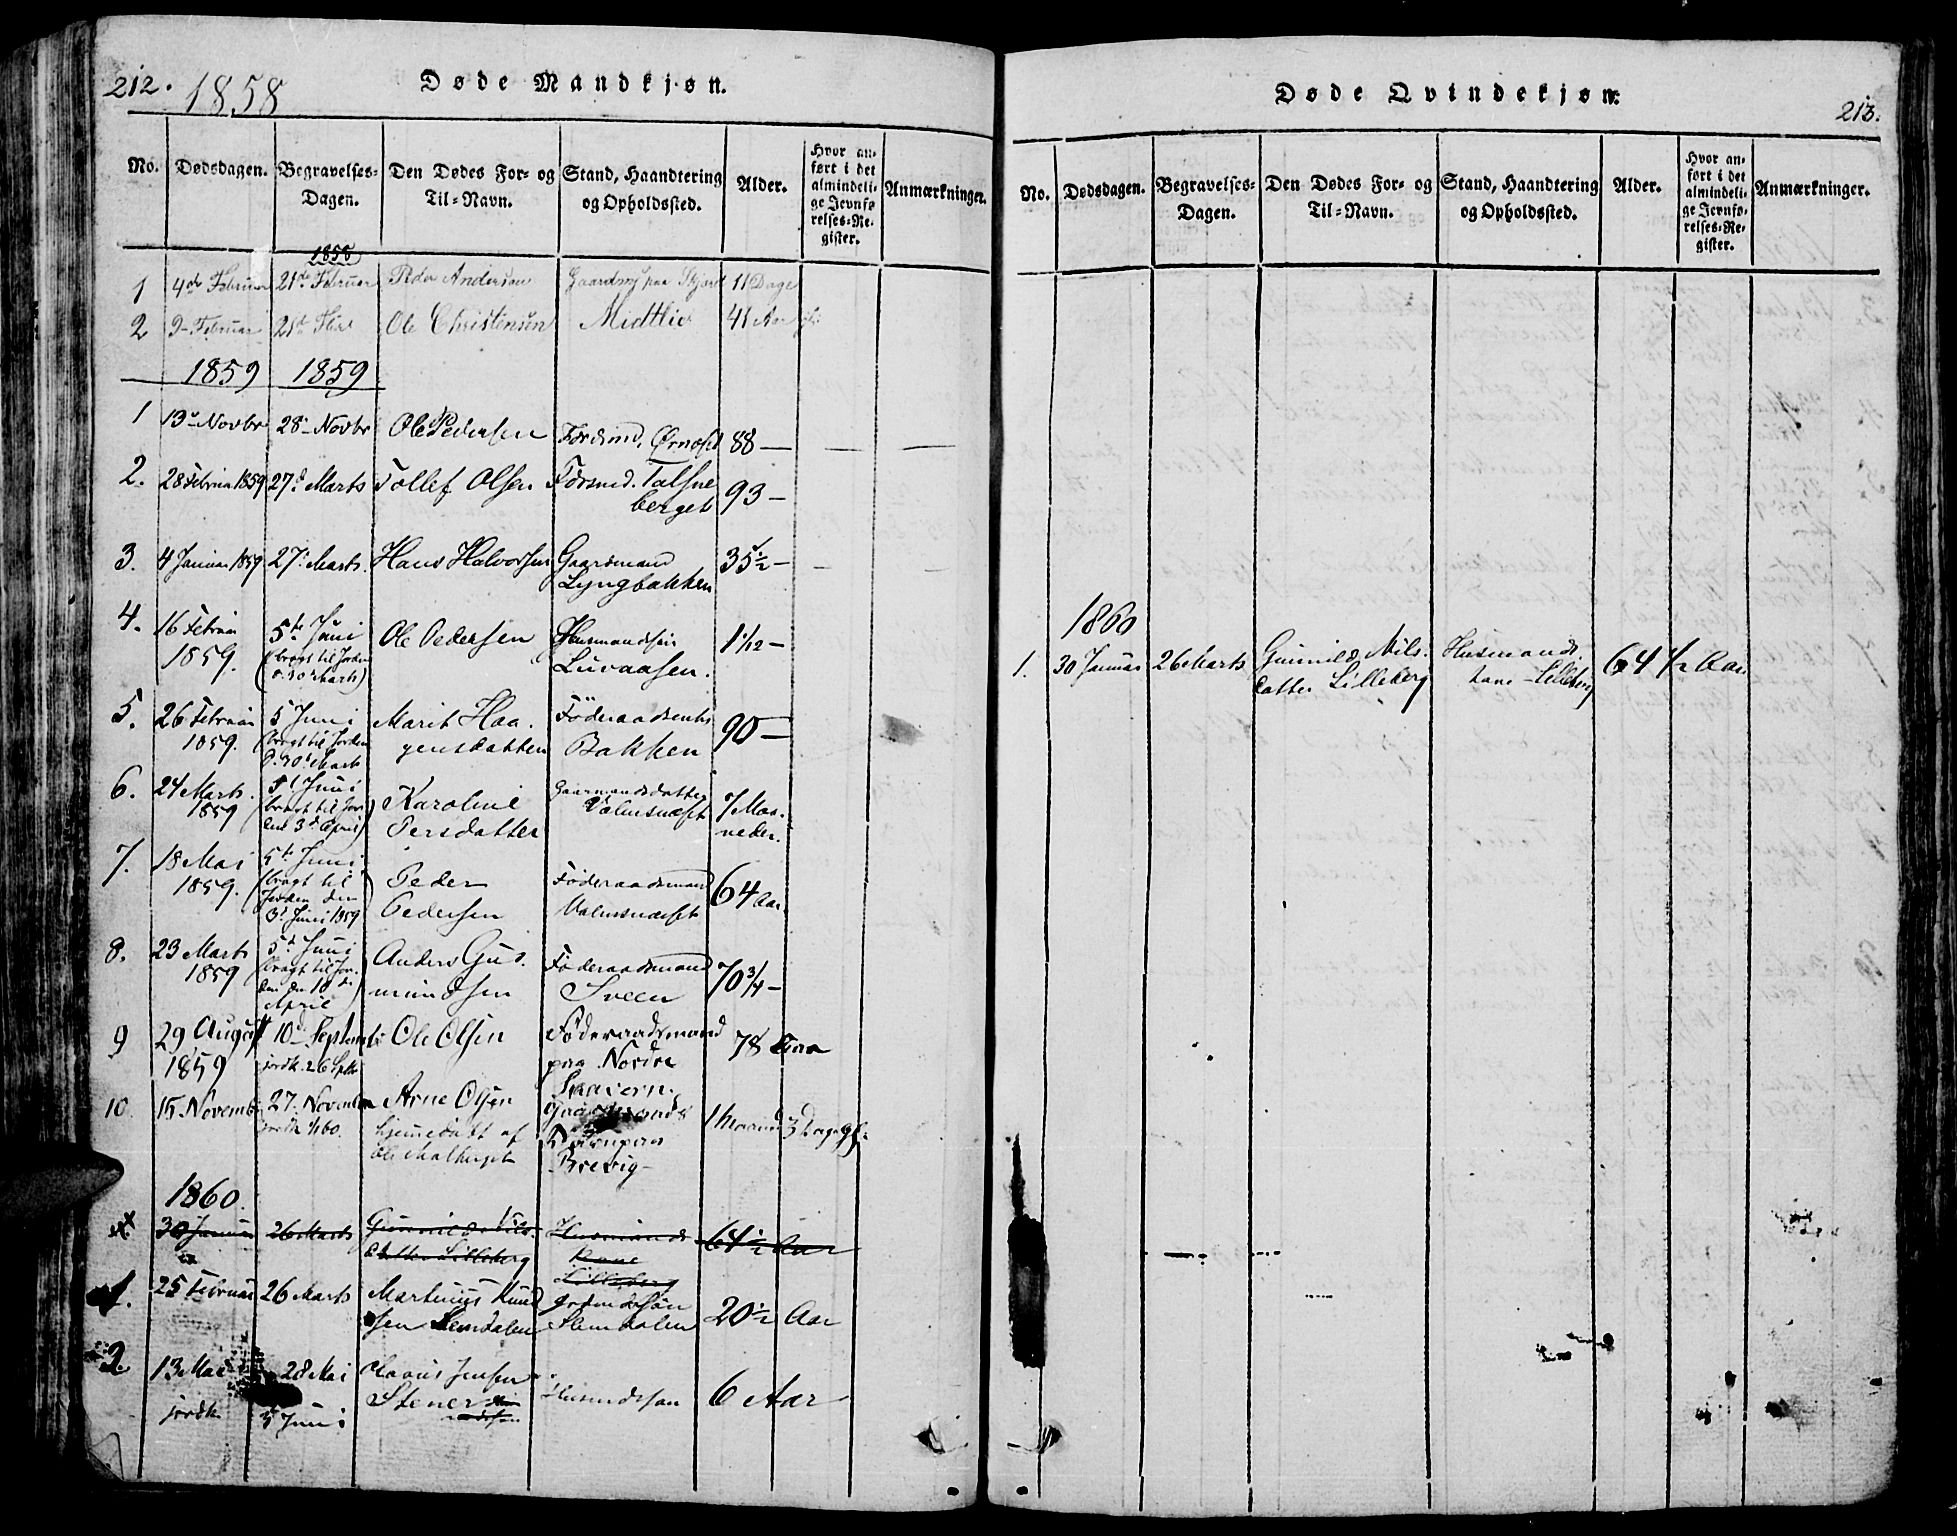 212.
1858
Døde Mandkjøn.
No.
Dødsdagen.
Begravelses-
Dagen.
Den Dødes For- og
Til-Navn.
Stand, Haandtering
og Opholdssted.
Alder.
Hvor an-
ført i det
almindeli-
ge Jevnfø-
relses-Re-
gister.
Anmærkninger.
1858
1 4de Februar 21de Februar Peder Andersen 11 Dage
2 9- Februar 21de Ole Christensen Midtlie 41 Aar
1859 1859
1 13- Novbr 28- Novbr Ole Pedersen Ørnæset 88 —
2. 28 Februar 1859 27d Marts Tollef Olsen
berget 93 —
3. 4 Januar 1859 27. Marts. Hans Halvorsen Gaardmand
Lyngbakken 35½ —
4. 16 Februar
1859.
5te Juni
(bragt til Jorden
d. 30 Marts)
Ole Pedersen
Husmandssøn
Luvaasen.
1 1/12 —
5. 26 Februar
1859.
5 Juni
(bragt til Jorden
d. 30 Marts
Marit Haa-
gensdatter
Föderaadsenke
Bakken
90 —
6. 24 Marts.
1859
5t Juni
(bragt til Jor-
den 3d April)
Karoline
Persdatter
Gaarmandsdatter
Valmsnæset
7 Maa-
neder.
7. 18 Mai
1859.
5te Juni
(bragt til
Jorden den
3d Juni 1859
Peder
Pedersen
Föderaadsmand
Valmsnæset
64 Aar.
8. 23 Marts
1859
5t Juni
(bragt til Jor-
den den 10de
April)
Anders Gus-
mundsen
Föderaadsmand
Sveen
70¾ —
9 29 August
1859
10d Septemb.
jordk. 26 Septb
Ole Olsen
Föderaadsmand
paa Nordre
78 Aar
10. 15. Novemb
27. November
jordk. 1/1 60.
Arne Olsen
hjemmedøbt af
Ole
Gaardmands
Brevig —
1 Maaned 3 Dage
1860.
30 Januar 26 Marts Gunnild Nils-
datter Lilleberg
Husmands
Kone
Lilleberg
64½ Aar
1. 25 Februar 26 Marts Martinus Knud
sen Slemdalen
Slemdalen
20½ Aar
2. 13 Mai
jordk.
28 Mai
5 Juni
Claus Jensen
Stener
Husmdssøn 6 Aar
Døde Qvindekjøn.
213.
No.
Dødsdagen.
Begravelses-
Dagen.
Den Dødes For- og
Til-Navn.
Stand, Haandtering
og Opholdssted.
Alder.
Hvor an-
ført i det
almindeli-
ge Jevnfø-
relses-Re-
gister.
Anmærkninger.
1860
1. 30 Januar 26 Marts Gunnild Nils-
datter Lilleberg
Husmands-
kone - Lilleberg
64 ½ Aar